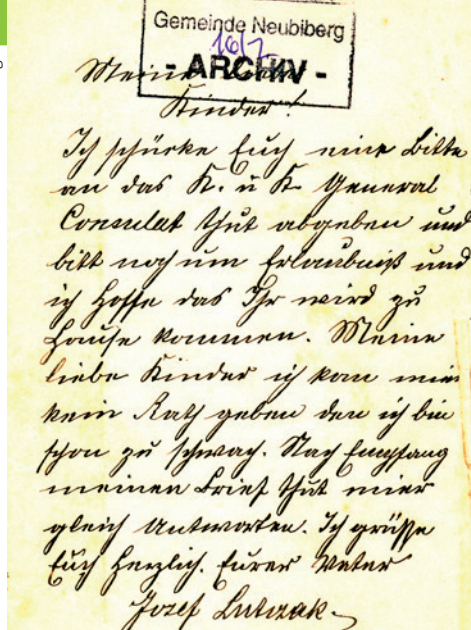 Gemeinde Neubiberg
16/2
- ARCHIV -
Meine
Kinder!
Ich schücke Euch eine Bitte
an das K. u K. General
Consulat thut abgeben und
bitt noch um Erlaubniß und
ich hoffe das Ihr wird zu
Hause kommen. Meine
liebe Kinder ich kan mir
kein Rath geben den ich bin
schon zu schwach. Nach Empfang
meinen Brief thut mier
gleich Antworten. Ich grüsse
Euch herzlich. Eurer Vater
Josef Lutczak